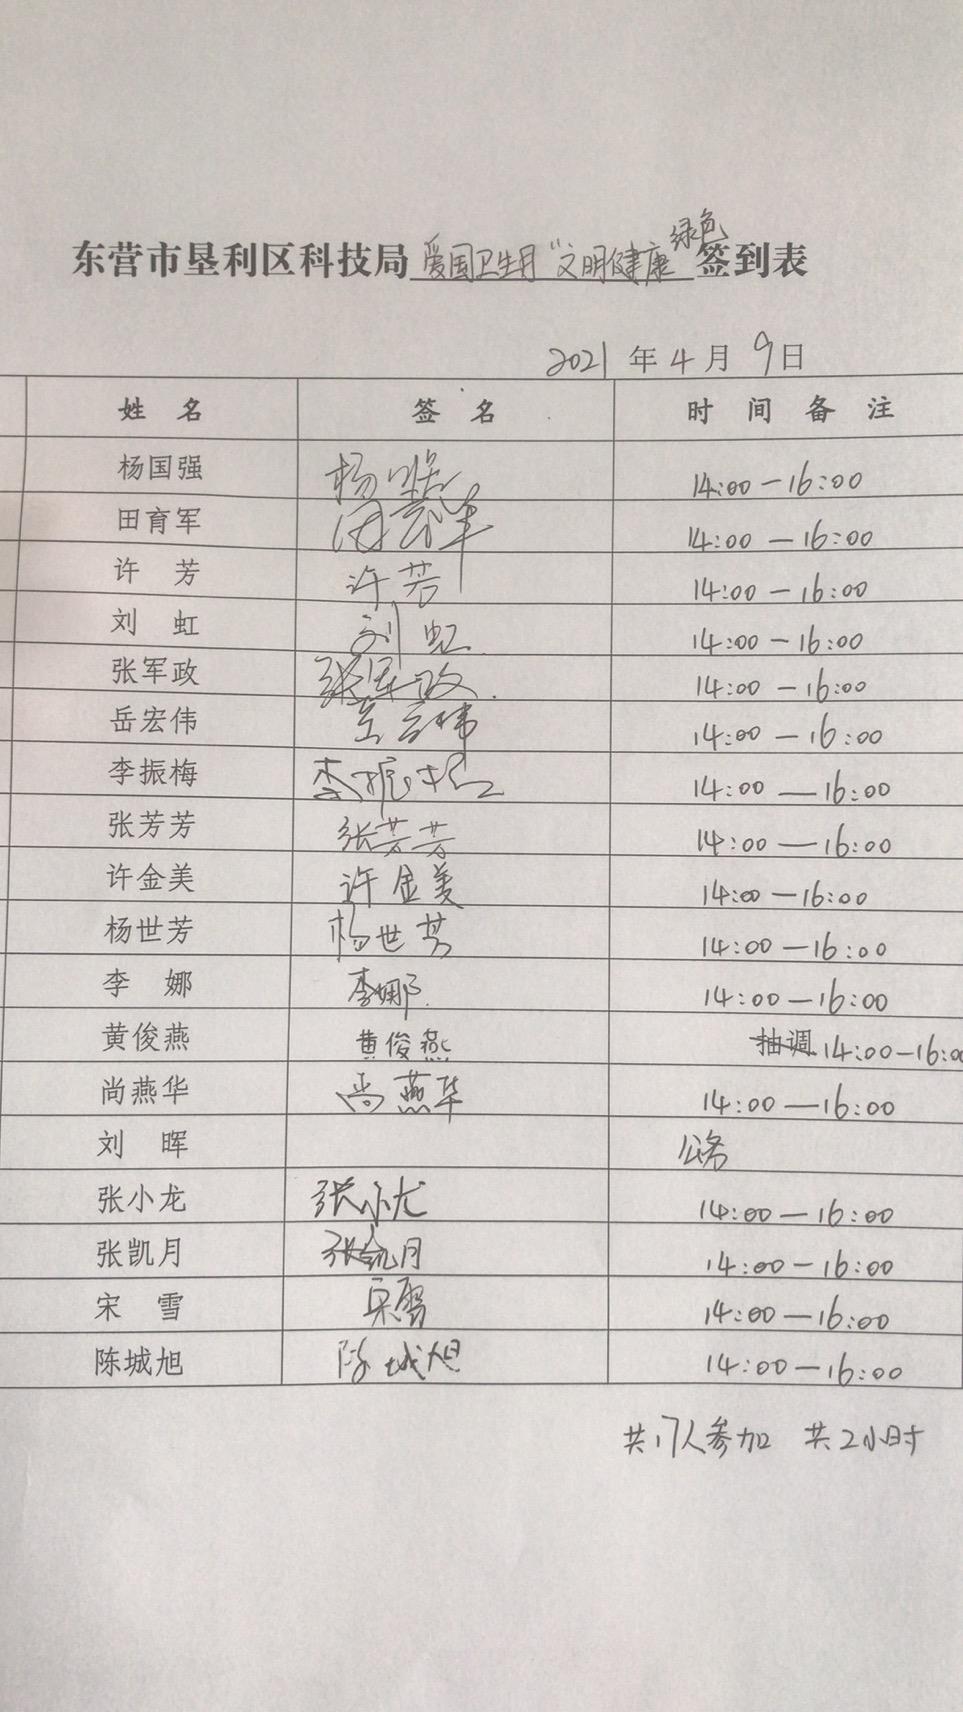 绿色
东营市垦利区科技局 爱国卫生月“文明健康” 签到表
2021 年 4 月 9 日
姓 名 签 名 时 间 备 注
杨国强 杨国强 14:00-16:00
田育军 田育军 14:00-16:00
许 芳 许芳 14:00-16:00
刘 虹 刘虹 14:00-16:00
张军政 张军政 14:00-16:00
岳宏伟 岳宏伟 14:00-16:00
李振梅 李振梅 14:00-16:00
张芳芳 张芳芳 14:00-16:00
许金美 许金美 14:00-16:00
杨世芳 杨世芳 14:00-16:00
李 娜 李娜 14:00-16:00
黄俊燕 黄俊燕 抽调 14:00-16:00
尚燕华 尚燕华 14:00-16:00
刘 晖 公务
张小龙 张小龙 14:00-16:00
张凯月 张凯月 14:00-16:00
宋 雪 宋雪 14:00-16:00
陈城旭 陈城旭 14:00-16:00
共17人参加 共2小时